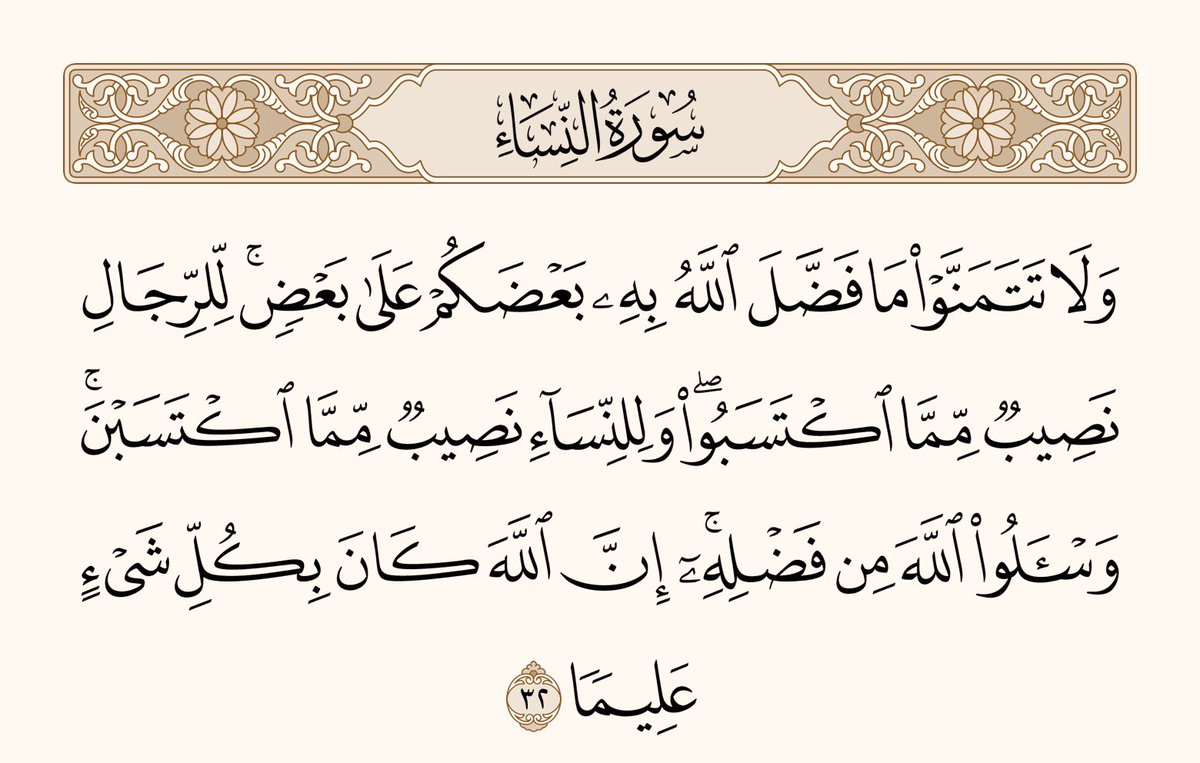 سُورَةُ النِّسَاءِ
وَلَا تَتَمَنَّوۡاْ مَا فَضَّلَ ٱللَّهُ بِهِۦ بَعۡضَكُمۡ عَلَىٰ بَعۡضٖۚ لِّلرِّجَالِ
نَصِيبٞ مِّمَّا ٱكۡتَسَبُواْۖ وَلِلنِّسَآءِ نَصِيبٞ مِّمَّا ٱكۡتَسَبۡنَۚ
وَسۡـَٔلُواْ ٱللَّهَ مِن فَضۡلِهِۦٓۚ إِنَّ ٱللَّهَ كَانَ بِكُلِّ شَيۡءٍ
عَلِيمٗا ٣٢